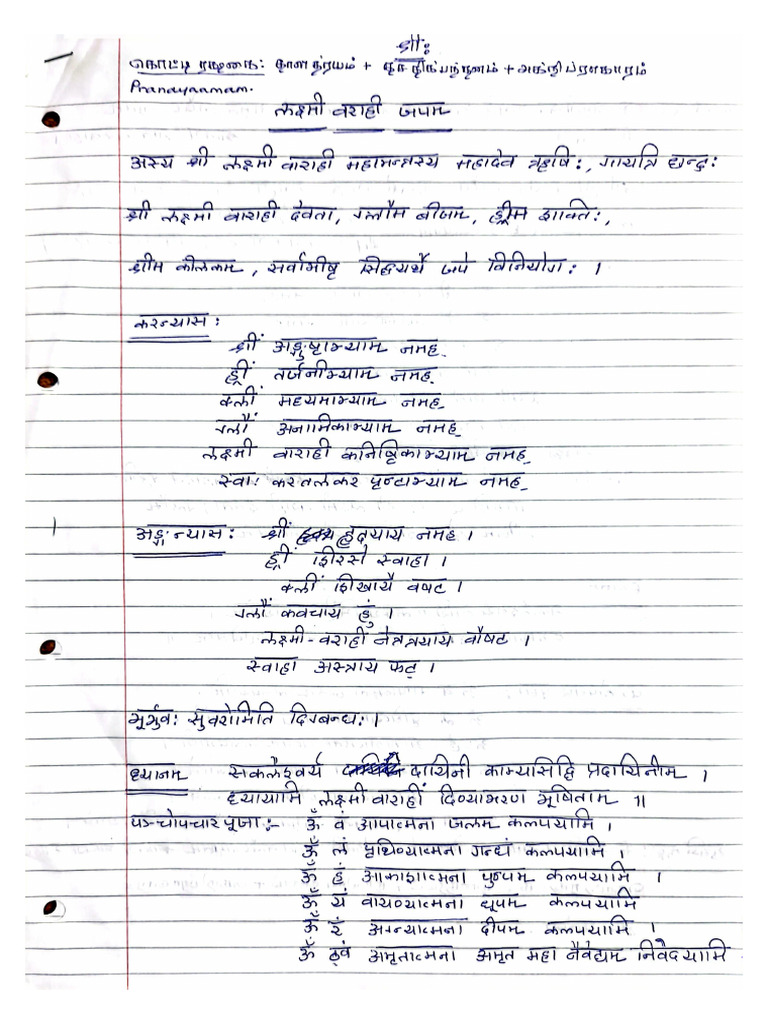 श्रीः
கொட்டி ரக்ஷகை: தாள த்ரயம் + திக் பந்தனம் + அக்நி ப்ராகாரம்
Pranayaamam.
लक्ष्मी वराही जपम
अस्य श्री लक्ष्मी वाराही महामन्त्रस्य महादेव ऋषिः, गायत्रि छन्दः
श्री लक्ष्मी वाराही देवता, ग्लौम बीजम, ह्रीम शक्तिः,
श्रीम कीलकम, सर्वाभीष्ट सिद्ध्यर्थे जपे विनियोगः ।
करन्यासः
श्रीं अङ्गुष्टाभ्याम नमह
ह्रीं तर्जनीभ्याम नमह
क्लीं मध्यमाभ्याम नमह
ग्लौं अनामिकाभ्याम नमह
लक्ष्मी वाराही कनिष्टिकाभ्याम नमह
स्वाः करतलकर पृष्टाभ्याम नमह
अङ्गन्यासः श्रीं हृदयाय नमह ।
ह्रीं शिरसे स्वाहा ।
क्लीं शिखायै वषट ।
ग्लौं कवचाय हुं ।
लक्ष्मी-वराहीं नेत्रत्रयाय वौषट ।
स्वाहा अस्त्राय फट् ।
भूर्भुवः सुवरोमिति दिग्बन्धः ।
ध्यानम सकलैश्वर्य दायिनी काम्यसिद्दि प्रदायिनीम ।
ध्यायामि लक्ष्मी वाराहीं दिव्याभरण भूषिताम ॥
पञ्चोपचार पूजाः- ॐ वं आपात्मना जलम कल्पयामि ।
ॐ लं पृथिव्यात्मना गन्धं कल्पयामि ।
ॐ हं आकाशात्मना पुष्पम कल्पयामि ।
ॐ यं वायव्यात्मना धूपम कल्पयामि
ॐ रं अग्न्यात्मना दीपम कल्पयामि ।
ॐ ठ्वं अमृतात्मना अमृत महा नैवेद्यम निवेदयामि